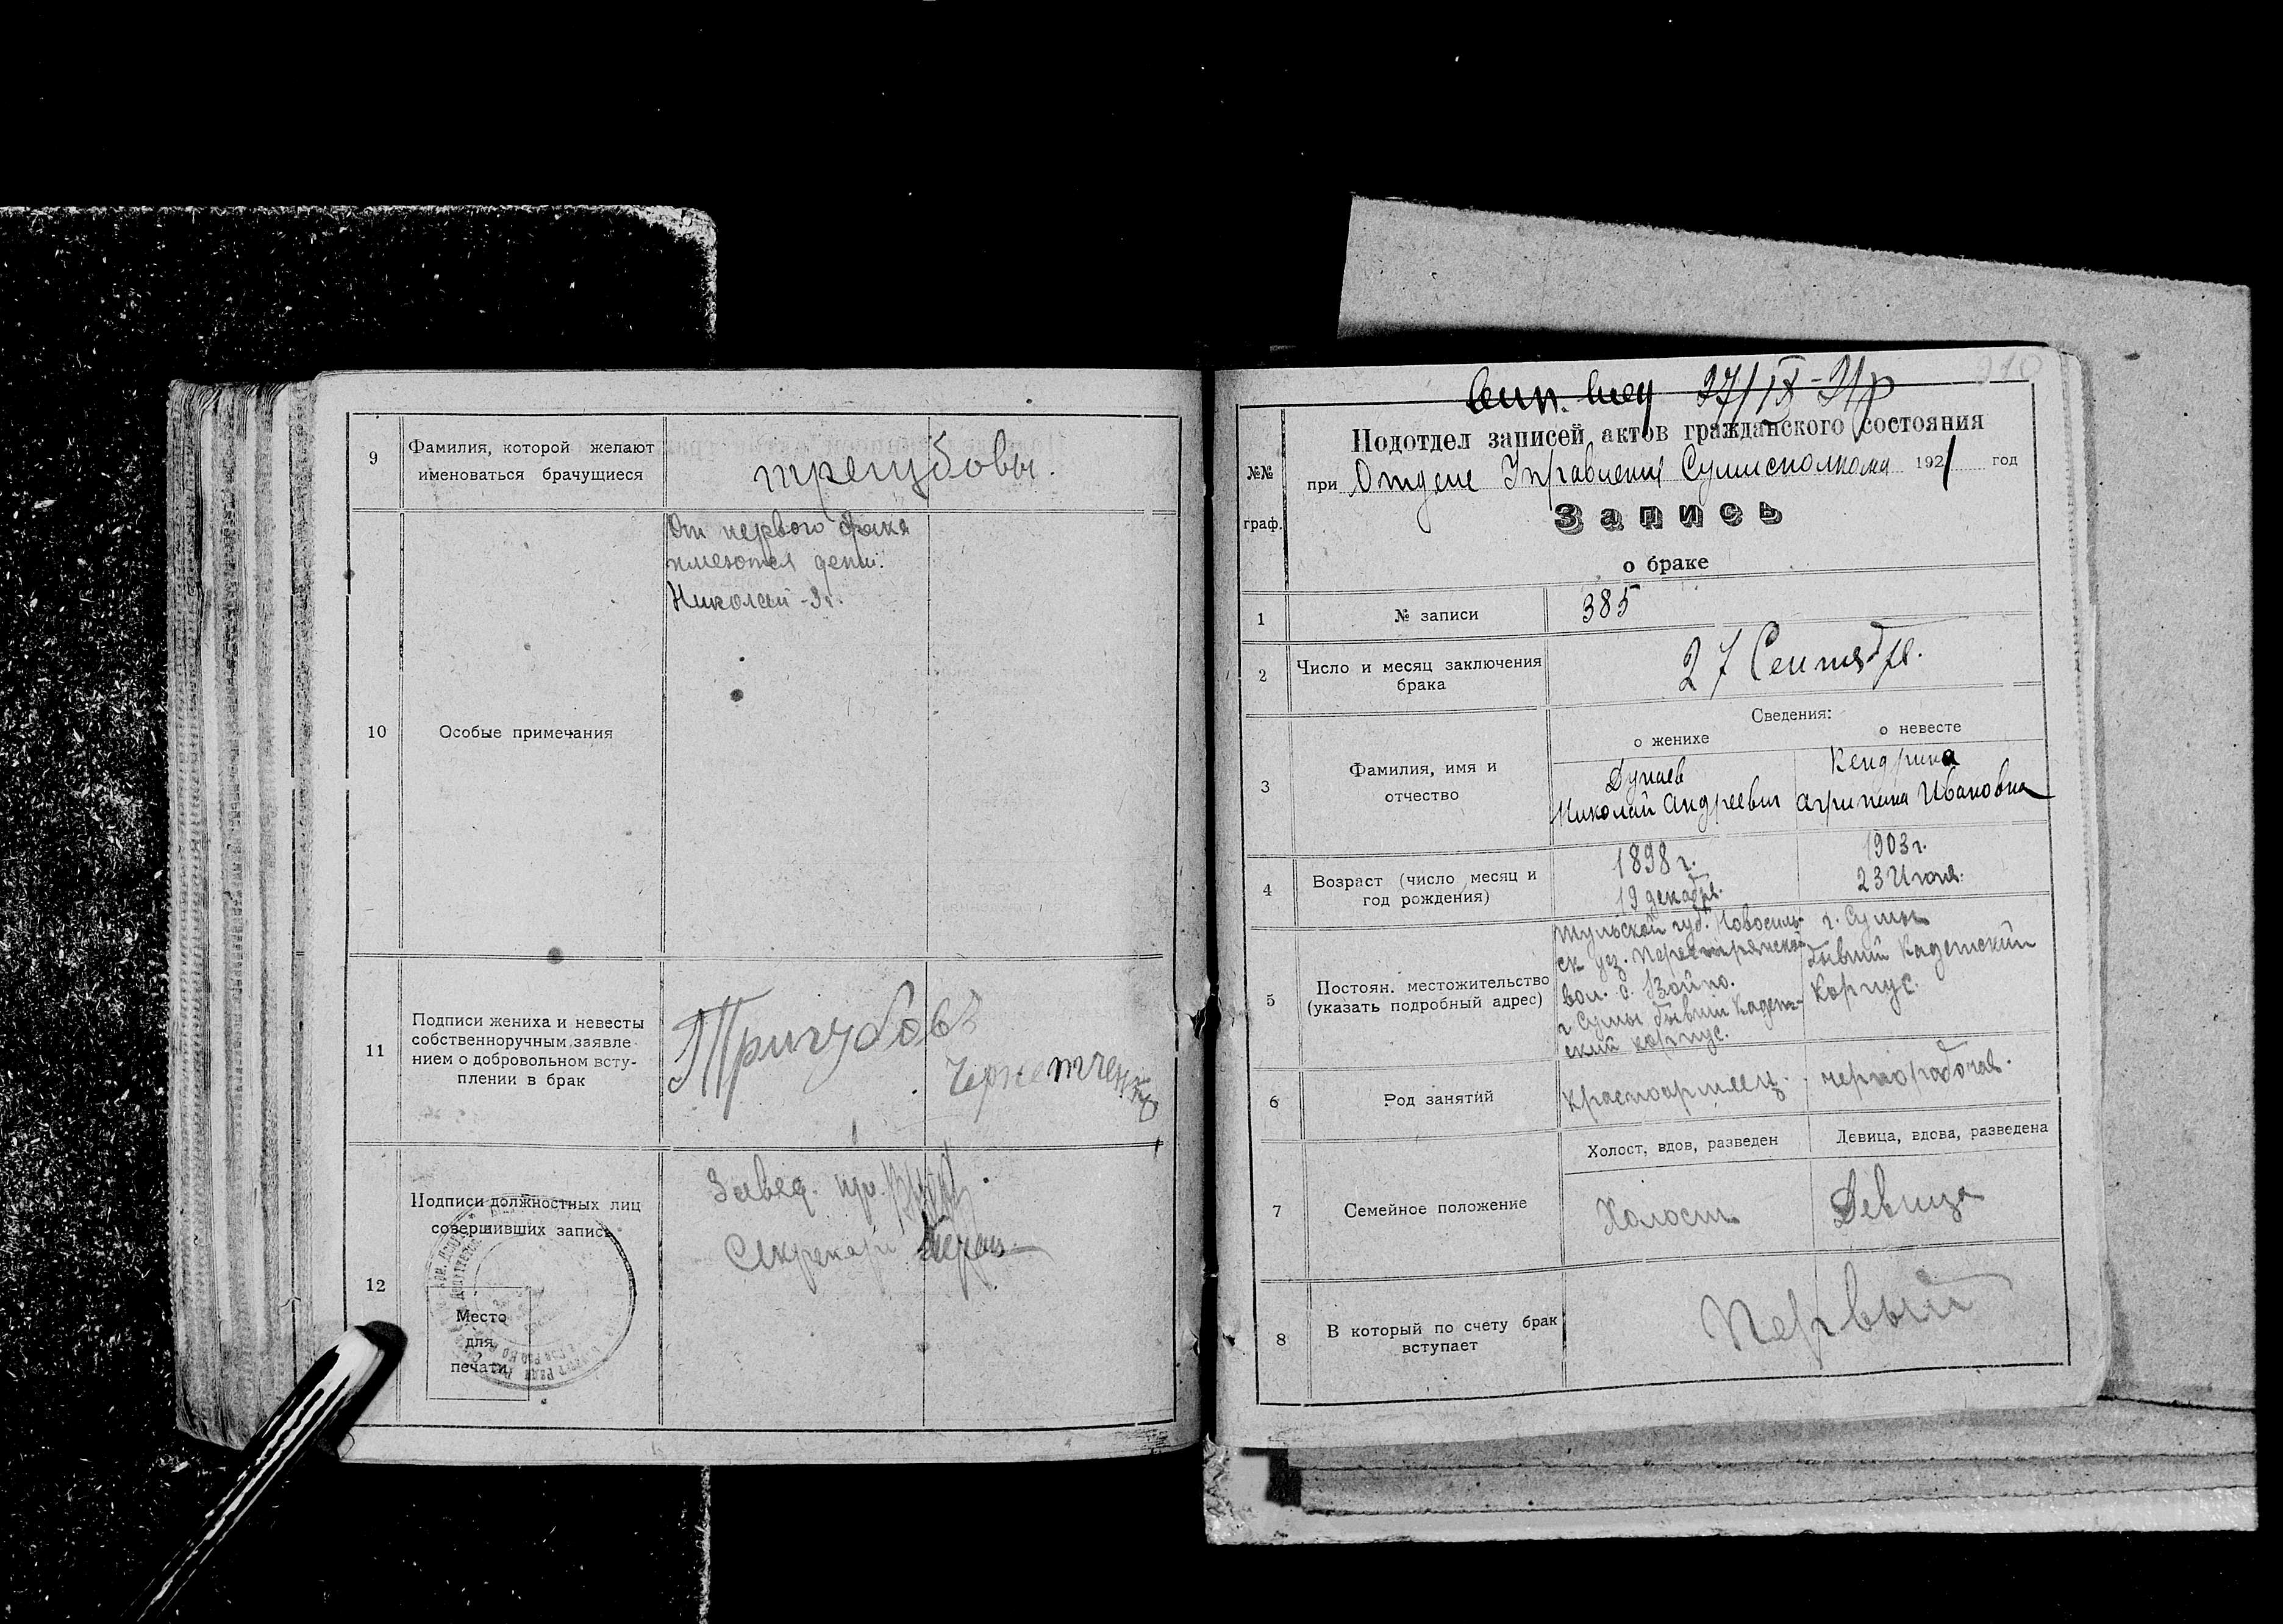 9
Фамилия, которой желают
именоваться брачущиеся
трегубовы.
10
Особые примечания
От первого брака
имеются дети:
Николай - 3 г.
11
Подписи жениха и невесты
собственноручным заявле-
нием о добровольном всту-
плении в брак
Тригубовъ
12
Подписи должностных лиц
совершивших запись
Завед.
Секретарь
Место
для
печати
210
27/IX-21р
№№
граф.
Подотдел записей актов гражданского состояния
при Отделе Управления Сумисполкома 1921 год
Запись
о браке
1
№ записи
385
2
Число и месяц заключения
брака
27 Сентября.
Сведения:
о женихе
о невесте
3
Фамилия, имя и
отчество
Дунаев
Николай Андреевич
Кендрина
Агрипина Ивановна
4
Возраст (число месяц и
год рождения)
1898 г.
19 декабря.
1903 г.
23 Июня.
5
Постоян. местожительство
(указать подробный адрес)
Тульской губ. Новосиль-
ск уез.
вол. с.
г Сумы бывший Кадет-
ский корпус.
г. Сумы
бывший Кадетский
Корпус.
6
Род занятий
красноармеец.
чернорабочая.
7
Семейное положение
Холост, вдов, разведен
Девица, вдова, разведена
Холост
Девица
8
В который по счету брак
вступает
Первый